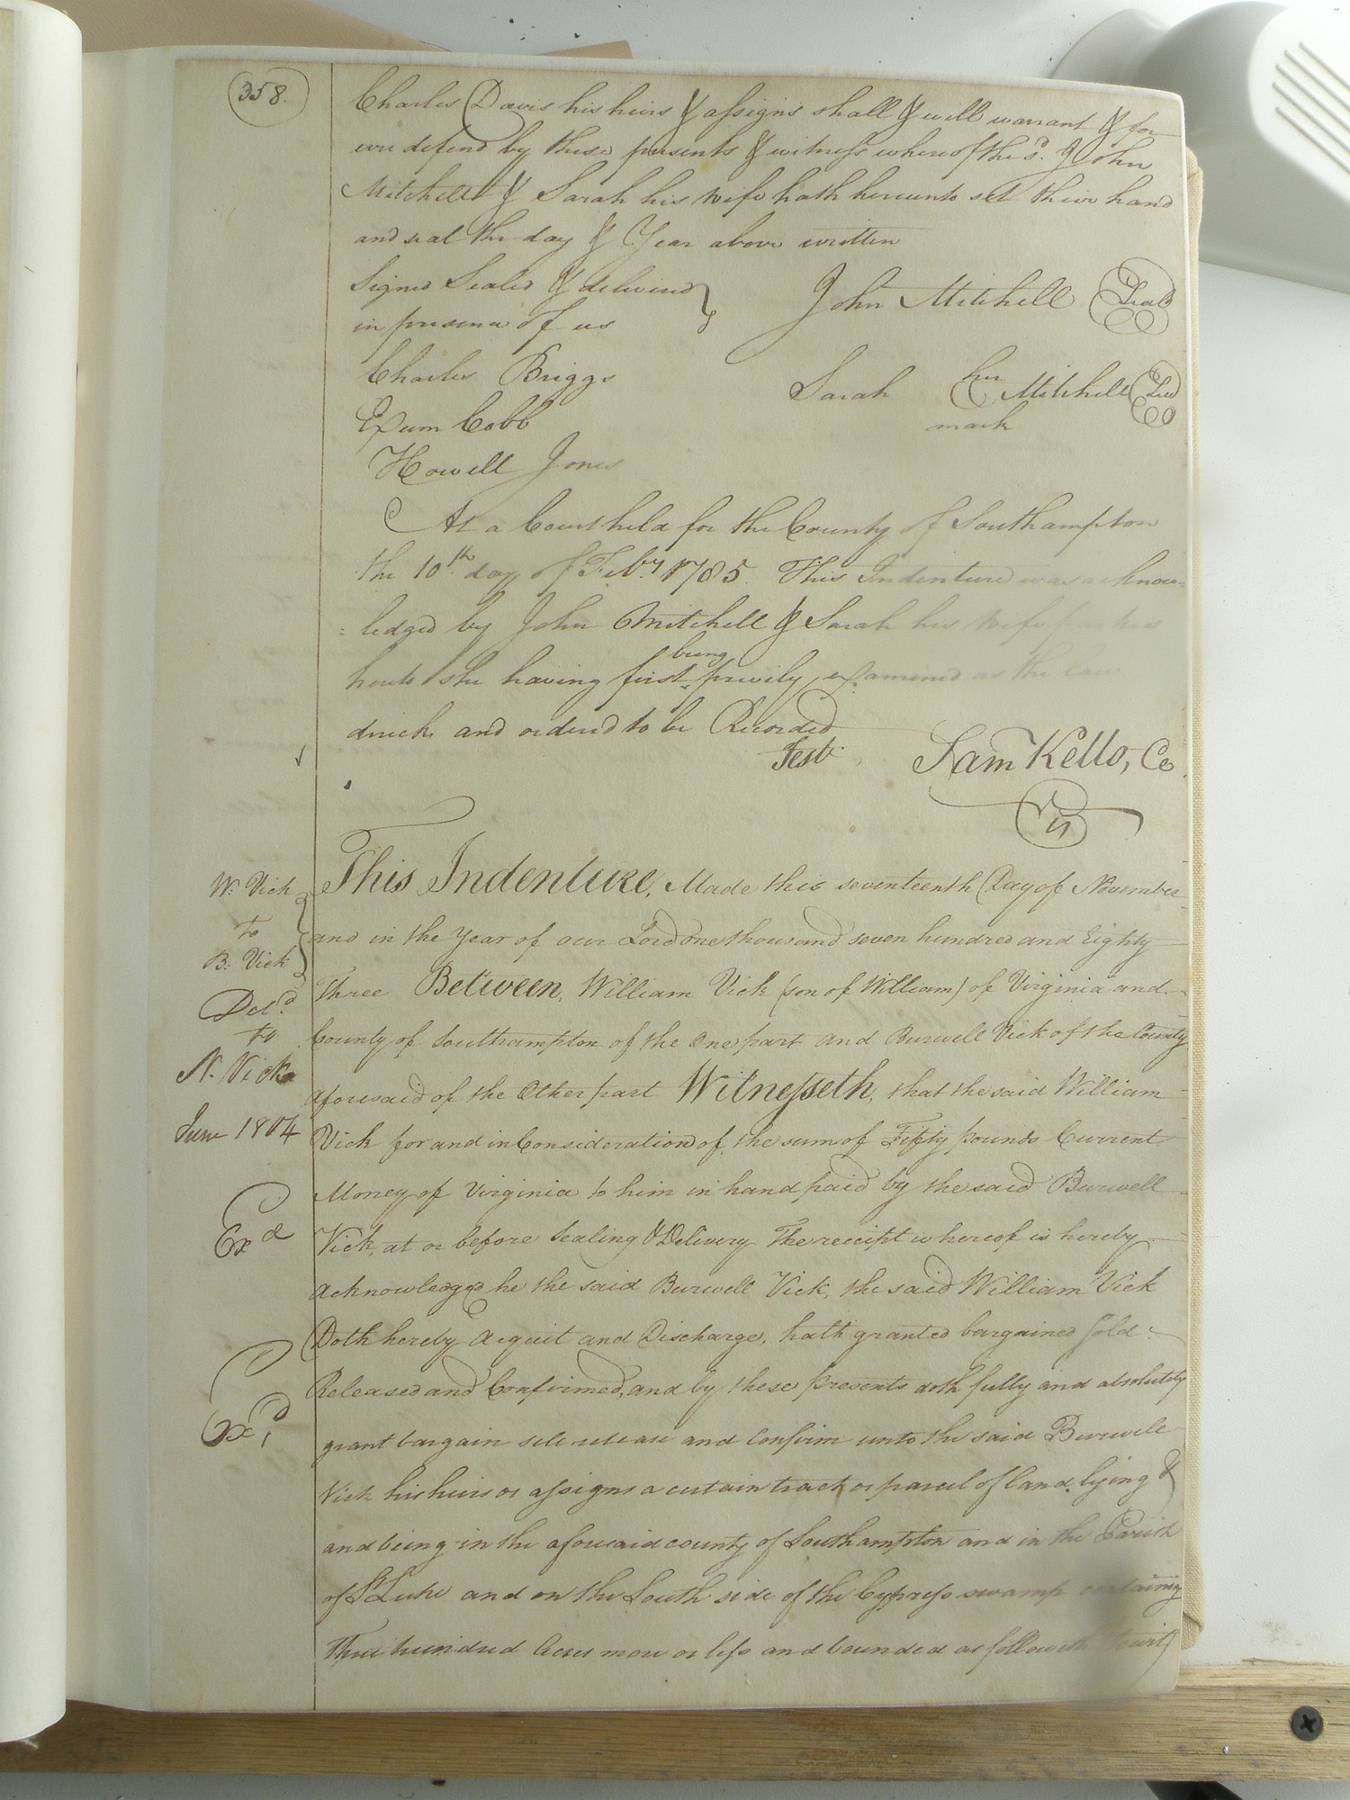 358.
Charles Davis his heirs & assigns shall & will warrant & for
ever defend by these presents & witness whereof the sd. John
Mitchell & Sarah his Wife hath hereunto set their hand
and seal the day & Year above written
Signed Sealed & delivered
in presence of us
John Mitchell Seal
Charles Briggs
Sarah her Mitchell Seal
mark
Exum Cobb
Howell Jones
At a Court held for the County of Southampton
the 10th day of Feby 1785. This Indenture was acknow-
=ledged by John Mitchell & Sarah his Wife
she having first being privily examined as the Law
directs and ordered to be Recorded
Test. Sam Kello, Co
W. Vick
to
B. Vick
Deld
to
N. Vick
June 1804
Exd
Exd,
This Indenture, Made this seventeenth Day of November
and in the Year of our Lord one thousand seven hundred and Eighty
Three Between, William Vick (son of William) of Virginia and
County of Southampton of the one part and Burwell Vick of the County
aforesaid of the Other part Witnesseth, that the said William
Vick for and in Consideration of the sum of Fifty pounds Current
Money of Virginia to him in hand paid by the said Burwell
Vick, at or before Sealing & Delivery The receipt whereof is hereby
Acknowledged he the said Burwell Vick, the said William Vick
Doth hereby Acquit and Discharge, hath granted bargained sold
Released and Confirmed, and by these presents doth fully and absolutely
grant bargain sell release and Confirm unto the said Burwell
Vick his heirs or assigns a certain tract or parcel of land lying &
and being in the aforesaid county of Southampton and in the Parish
of St Luke and on the South side of the Cypress swamp containing
Three hundred Acres more or less and bounded as followeth (towit)